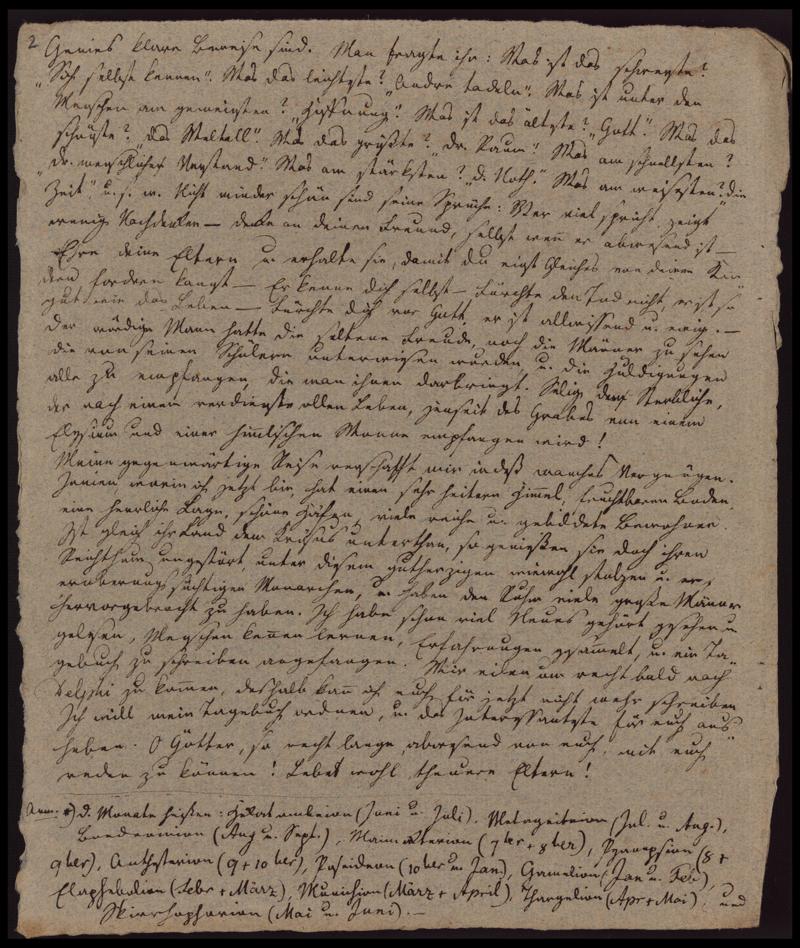 2 Genies klare Beweise sind. Man fragte ihn: Was ist das schwerste?
„Sich selbst kennen“. Was das leichteste? „Andre tadeln“. Was ist unter den
Menschen am gemeinsten? „Hoffnung“. Was ist das älteste? „Gott“. Was das
schönste? „das Weltall“. Was das größte? „Dr. Raum“. Was am schnellsten?
„dr. menschliche Verstand“. Was am stärksten? „d. Noth.“ Was am weisesten? „die
Zeit“ u. s. w. Nicht minder schön sind seine Sprüche: Wer viel spricht, zeigt
wenig Nachdenken – denke an deinen Freund, selbst wenn er abwesend ist –
Ehre deine Eltern u. erhalte sie, damit du einst Gleiches von deinen Kin„
dern fordern kannst – Erkenne dich selbst – Fürchte den Tod nicht, er ist so
gut wie das Leben – Fürchte dich vor Gott, er ist allwissend u. ewig. –
Der würdige Mann hatte die seltene Freude, noch die Männer zu sehen
die von seinen Schülern unterwiesen wurden u. die Huldigungen
alle zu empfangen, die man ihnen darbringt. Selig der Sterbliche,
der nach einem verdienstvollen Leben, jenseit des Grabes von einem
Elysium und einer himmlischen Wonne empfangen wird!
Meine gegenwärtige Reise verschafft mir indeß manches Vergnügen.
Jonien worin ich jetzt bin, hat einen sehr heitern Himmel, fruchtbaren Boden,
eine herrliche Lage, schöne Häfen, viele reiche u. gebildete Bewohner.
Ist gleich ihr Land dem Krösus unterthan, so genießen sie doch ihren
Reichthum ungestört, unter diesem gutherzigen wiewohl stolzen u. er„
oberungssüchtigen Monarchen, u. haben den Ruhm viele große Männer
hervorgebracht zu haben. Ich habe schon viel Neues gehört gesehen u
gelesen, Menschen kennen lernen, Erfahrungen gesammelt, u. ein Ta„
gebuch zu schreiben angefangen. Wir eilen um recht bald nach
Delphi zu kommen, deshalb kann ich euch für jetzt nicht mehr schreiben
Ich will mein Tagebuch ordnen, u. das Interessanteste für euch aus„
heben. O Götter, so recht lange abwesend von euch, mit euch
reden zu können! Lebet wohl, theuere Eltern!
Anm: *) d. Monate heißen: Hekatombeion (Juni u. Juli). Metageitnion (Jul. u. Aug.),
Boedromion (Aug u. Sept.), Maimakterion (7ber + 8ber), Pyanepsion (8 +
9ber), Anthesterion (9 + 10ber), Poseideon (10ber u. Jan), Gamelion (Jan u. Feb),
Elaphebolion (Febr + März), Munichion (März + April), Thargelion (Apr + Mai), und
Skirrhophorion (Mai u. Juni). –